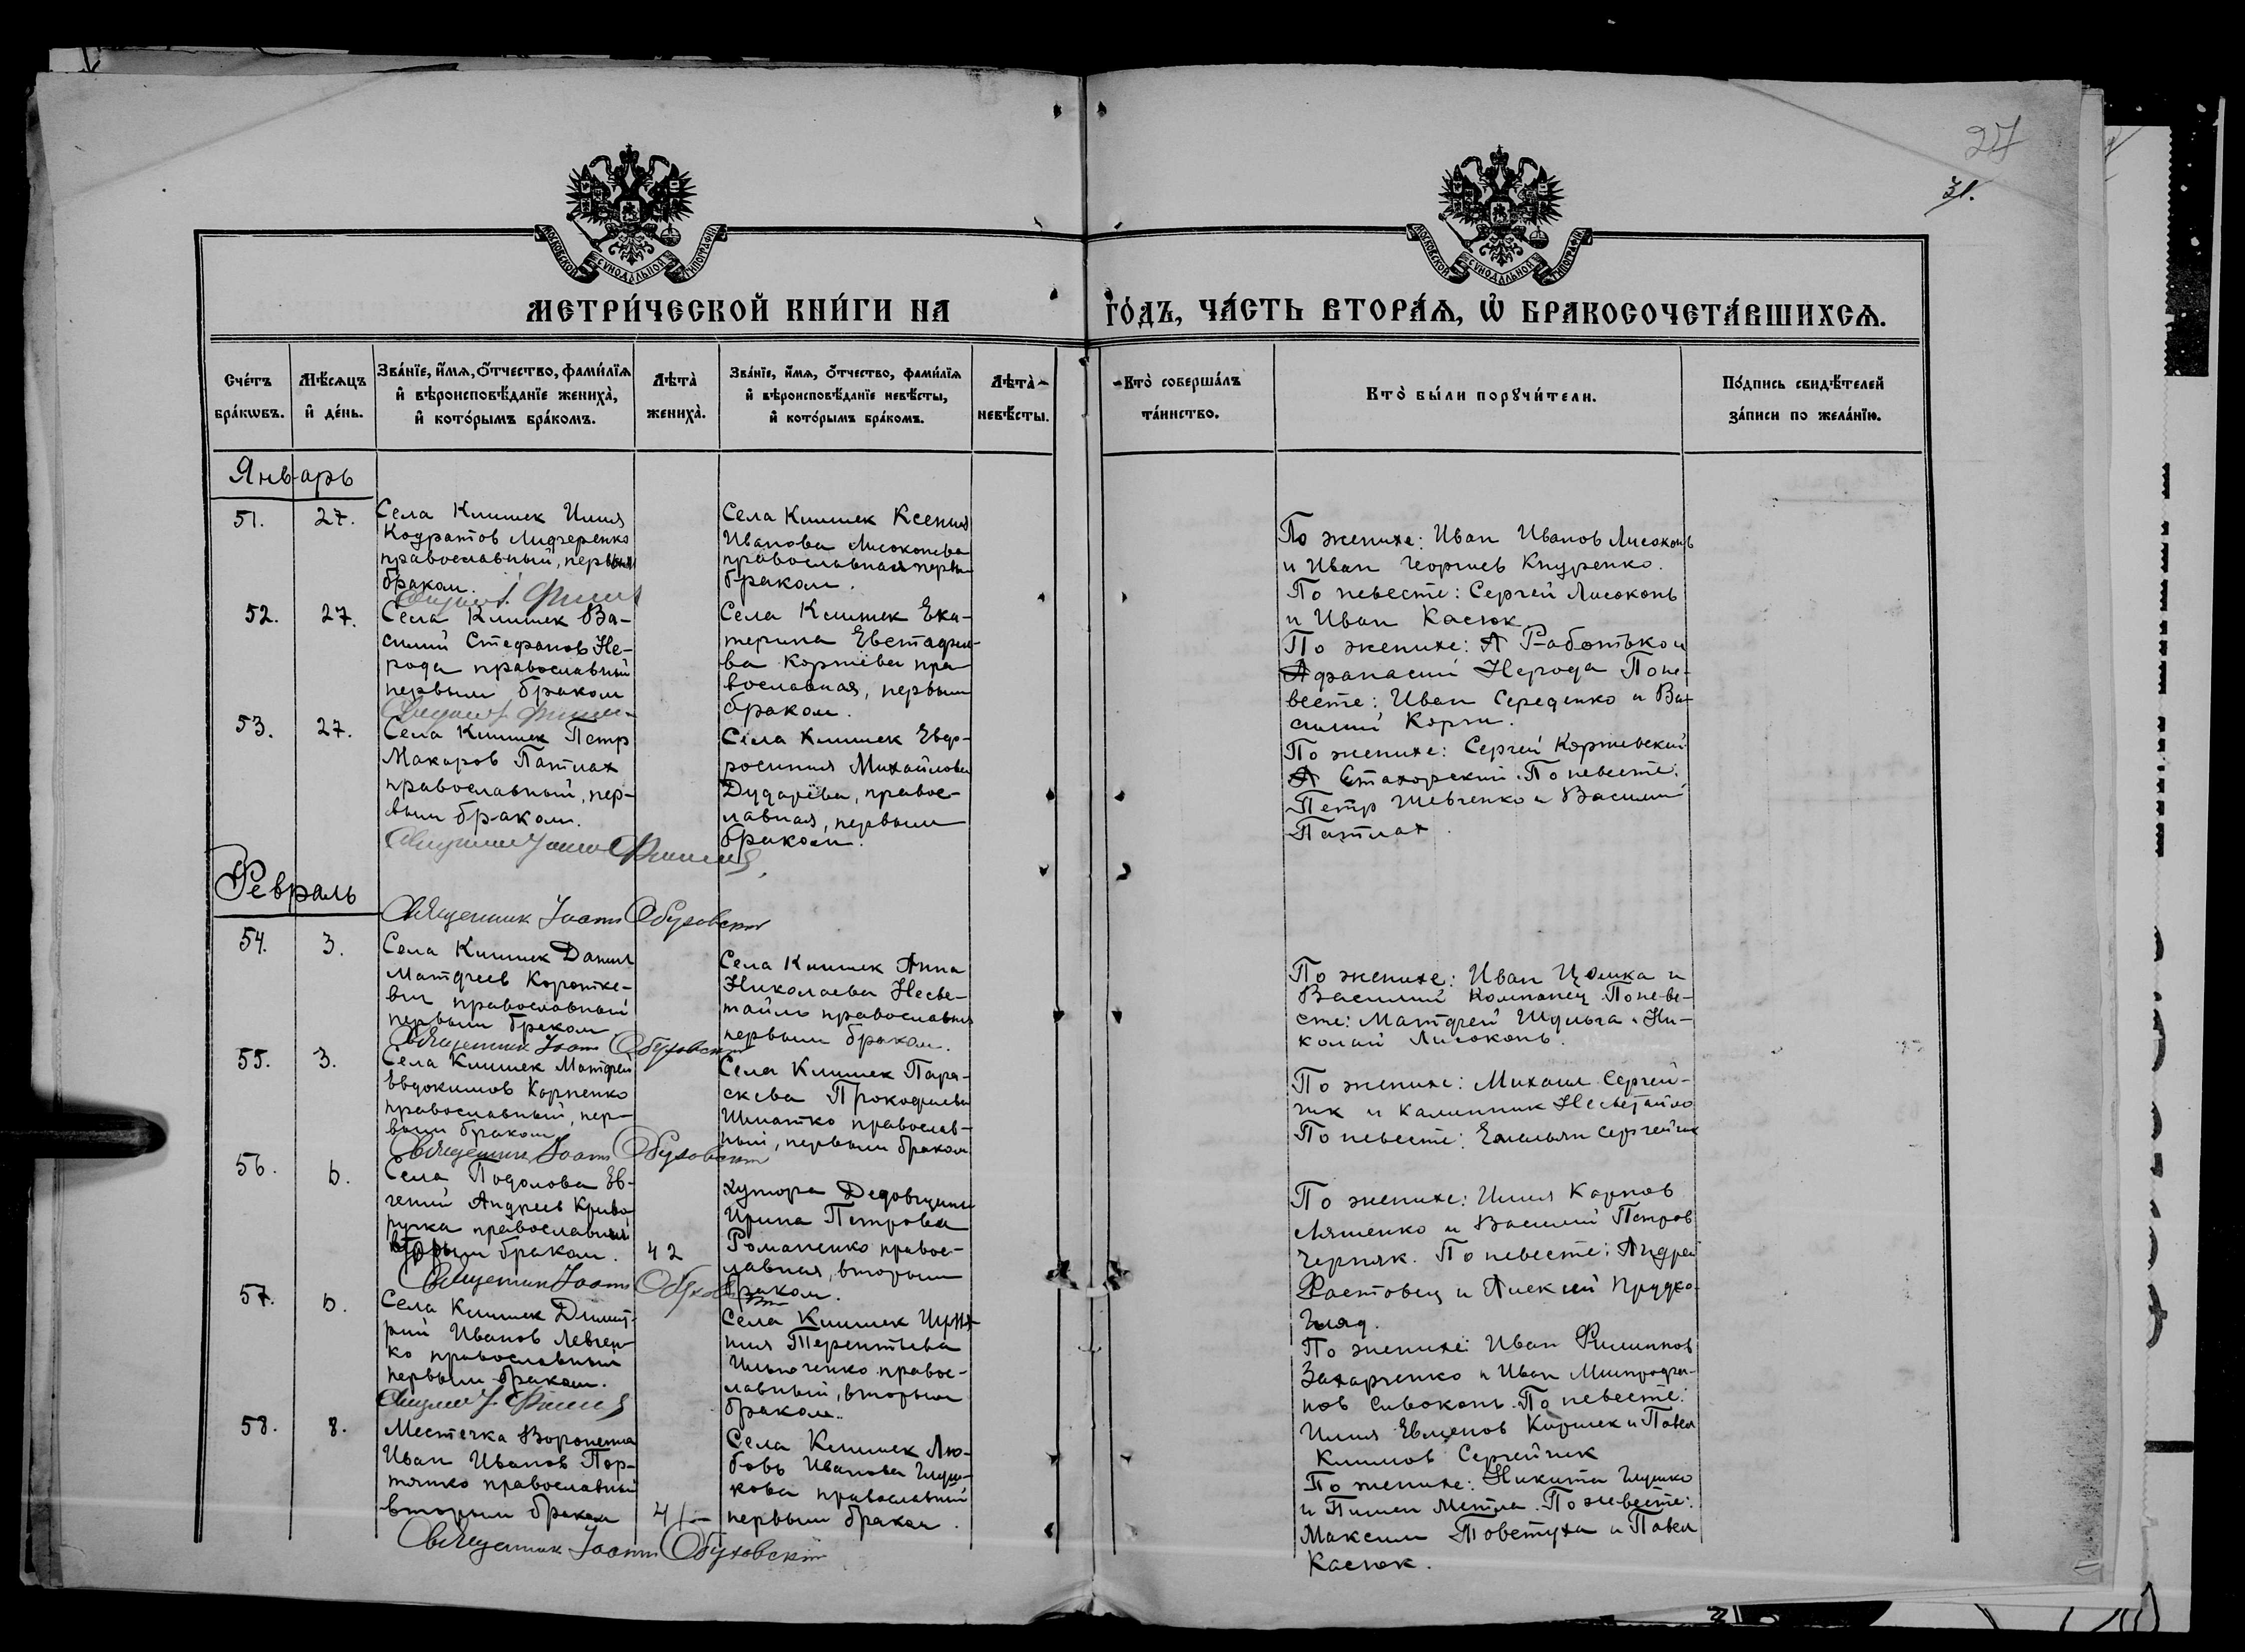 27
31.
МОСКОВСКОЙ СѴНОДАЛЬНОЙ ТИПОГРАФІИ
МОСКОВСКОЙ СѴНОДАЛЬНОЙ ТИПОГРАФІИ
МЕТРИ́ЧЕСКОЙ КНИ́ГИ НА
ГО́ДЪ, ЧА́СТЬ ВТОРА́Ѧ, Ѡ҆ БРАКОСОЧЕТА́ВШИХСѦ.
Сче́тъ бра́кωвъ.
Мѣ́сѧцъ и҆ де́нь.
Зва́нїе, и҆́мѧ, ѻ҆́тчество, фами́лїѧ
и҆ вѣроисповѣ́данїе жениха̀,
и҆ кото́рымъ бра́комъ.
Лѣта̀ жениха̀.
Зва́нїе, и҆́мѧ, ѻ҆́тчество, фами́лїѧ
и҆ вѣроисповѣ́данїе невѣ́сты,
и҆ кото́рымъ бра́комъ.
Лѣта̀ невѣ́сты.
Кто̀ соверша́лъ та́инство.
Кто̀ бы́ли порꙋчи́тели.
По́дпись свидѣ́телей за́писи по жела́нїю.
Январь
51.
27.
Села Клишек Илия
Кодратов Лидзеренко
православный, первым
браком.
Села Клишек Ксения
Иванова Лисоконева
православная первы
браком.
По женихе: Иван Иванов Лисоконь
и Иван Георгиев Кнуренко.
По невесте: Сергей Лисоконь
и Иван Касюк
52.
27.
Села Клишек Ва-
силий Стефанов Не-
рода православный
первым браком
Села Клишек Ека-
терина Евстафие-
ва Коржева пра
вославная, первым
браком.
По женихе: А Работько и
Афанасий Нерода По не-
весте: Иван Середенко и Ва-
силий Корж.
53.
27.
Села Клишек Петр
Макаров Патлах
православный, пер-
вым браком.
Села Клишек Евф-
росиния Михайлова
Дударёва, правос-
лавная, первым
браком.
По женихе: Сергей Коржевский
А Стахорский. По невесте:
Петр Шевченко и Василий
Патлах.
Февраль
Священник Иоанн Обуховский
54.
3.
Села Клишек Данил
Матфеев Коротке-
вич православный
первым браком
Священник Иоанн Обуховский
Села Клишек Анна
Николаева Несве-
тайло православная
первым браком.
По женихе: Иван Цомка и
Василий Компанец. По неве-
сте: Матфей Шульга и Ни-
колай Лисоконь.
55.
3.
Села Клишек Матфей
Евдокимов Карпенко
православный, пер-
вым браком
Священник Иоанн Обуховский
Села Клишек Пара-
скева Прокофиева
Шматко православ-
ный, первым браком
По женихе: Михаил Сергей-
чик и Калинник Несветайло
По невесте: Емельян Сергейчик
56.
6.
Села Подолова Ев-
гений Андреев Криво
ручка православный
вторым браком.
42
Священник Иоанн Обуховский
хутора Дедовщины
Ирина Петрова
Романенко правос-
лавная, вторым
браком.
По женихе: Илия Карпов
Ляшенко и Василий Петров
Черняк. По невесте: Андрей
Фастовец и Алексей Прудко-
гляд.
57.
6.
Села Клишек Димит-
рий Иванов Левчен-
ко православный
первым браком.
Села Клишек
ния Терентьева
Ильюченко правос-
лавный, вторым
браком.
По женихе: Иван Филиппов
Захарченко и Иван Митрофа-
нов Сивоконь. По невесте:
Илия Евменов Киршек и Павел
Климов Сергейчик
58.
8.
Местечка Воронежа
Иван Иванов Пор-
тянко православный
вторым браком
41
Села Клишек Лю-
бовь Иванова Глуш-
кова православный
первым браком.
По женихе: Никита Глушко
и Пимен Метла. По невесте:
Максим Товстуха и Павел
Касюк.
Священник Иоанн Обуховский